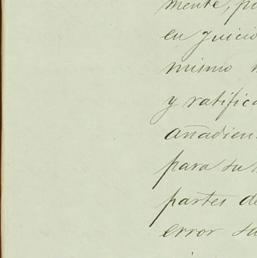 mente, p
en juicio
mismo
y ratific
añadien
para su
partes de
error su